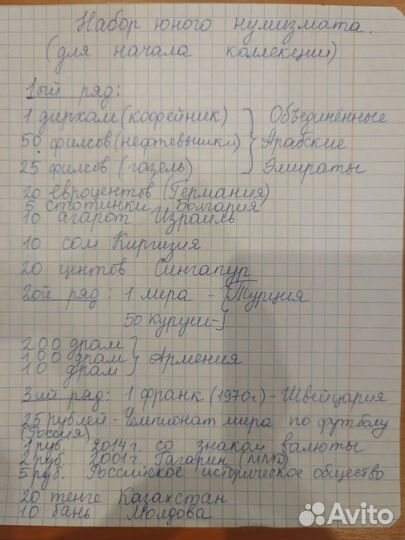 Набор юного нумизмата.
(для начала коллекции)
1ый ряд:
1 дирхам (кофейник) } Объединённые
50 филсов (нефтевышки) } Арабские
25 филсов (газель) } Эмираты
20 евроцентов (Германия)
5 стотинки Болгария
10 агарот Израиль
10 сом Киргизия
20 центов Сингапур
2ой ряд: 1 лира - Турция
50 куруш -
200 драм }
100 драм } Армения
10 драм }
3ий ряд: 1 франк (1970г.) - Швейцария
25 рублей - Чемпионат мира по футболу
(Россия)
1 руб. 2014г. со знаком валюты
2 руб. 2001г. Гагарин (ММД)
5 руб. Российское историческое общество
20 тенге Казахстан
10 бань Молдова
Avito